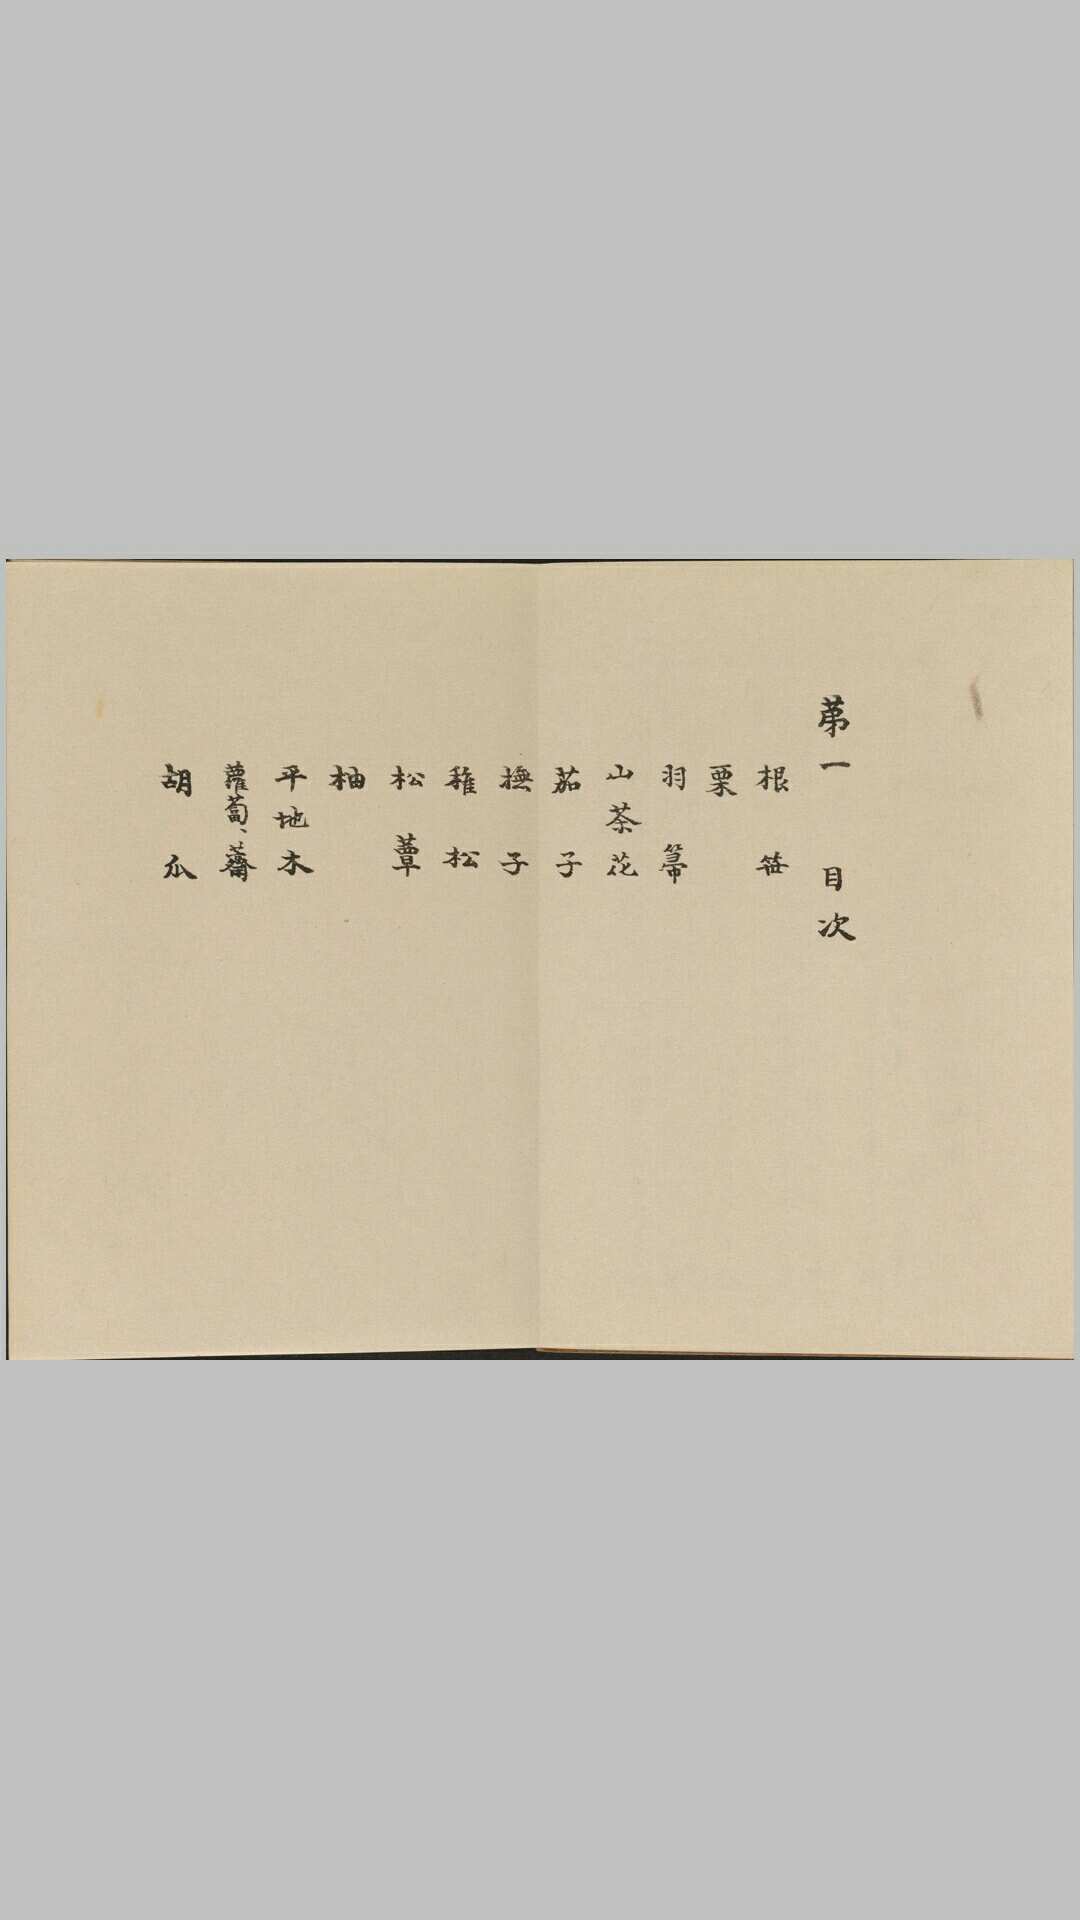 苐一 目次
根笹
栗
羽箒
山茶花
茄子
撫子
稚松
松蕈
柚
平地木
蘿蔔、薺
胡瓜